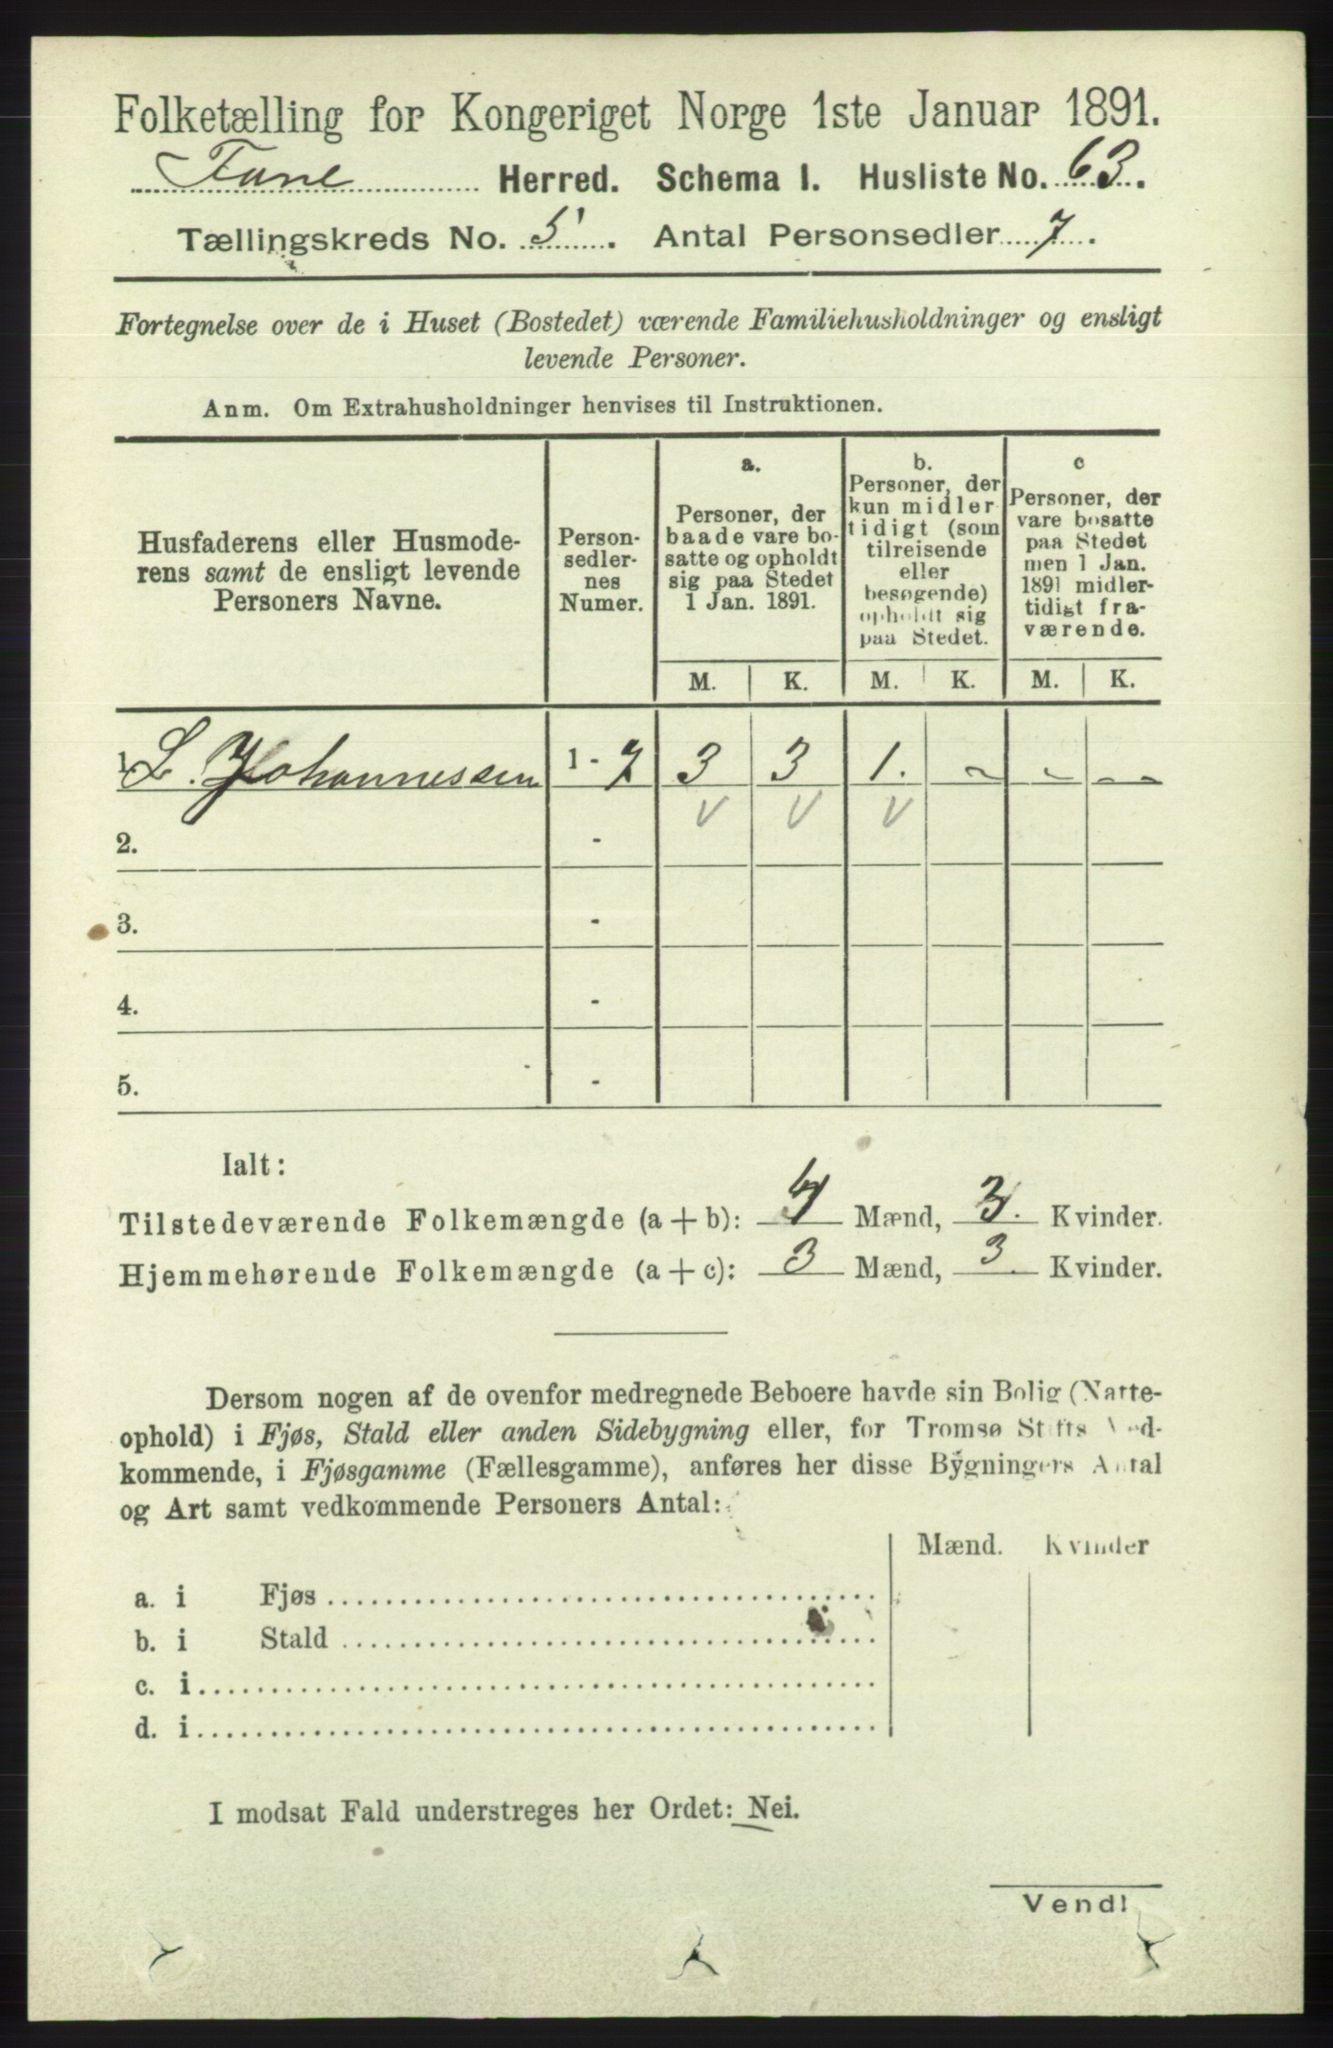 Folketælling for Kongeriget Norge 1ste Januar 1891.
Fane Herred. Schema I. Husliste No. 63.
Tællingskreds No. 5. Antal Personsedler 7.
Fortegnelse over de i Huset (Bostedet) værende Familiehusholdninger og ensligt
levende Personer.
Anm. Om Extrahusholdninger henvises til Instruktionen.
Husfaderens eller Husmode-
rens samt de ensligt levende
Personers Navne.
Person-
sedler-
nes
Numer.
a.
Personer, der
baade vare bo-
satte og opholdt
sig paa Stedet
1 Jan. 1891.
b.
Personer, der
kun midler
tidigt (som
tilreisende
eller
besøgende)
opholdt sig
paa Stedet.
c
Personer, der
vare bosatte
paa Stedet
men 1 Jan.
1891 midler-
tidigt fra-
værende.
M. K. M. K. M. K.
1 L. Johannessen 1 - 7 3 3 1. - - -
V V V
2. -
3. -
4. -
5. -
Ialt:
Tilstedeværende Folkemængde (a + b): 4 Mænd, 3. Kvinder.
Hjemmehørende Folkemængde (a + c): 3 Mænd, 3. Kvinder.
Dersom nogen af de ovenfor medregnede Beboere havde sin Bolig (Natte-
ophold) i Fjøs, Stald eller anden Sidebygning eller, for Tromsø Stifts Ved-
kommende, i Fjøsgamme (Fællesgamme), anføres her disse Bygningers Antal
og Art samt vedkommende Personers Antal:
Mænd. Kvinder
a. i Fjøs
b. i Stald
c. i
d. i
I modsat Fald understreges her Ordet: Nei.
Vend!